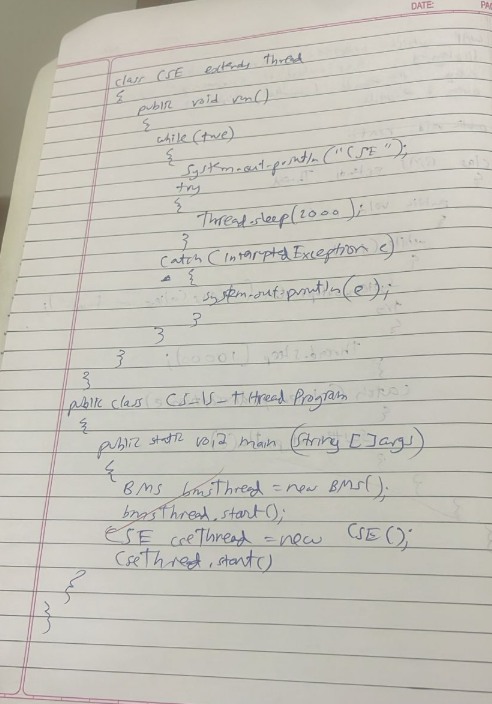 DATE:
PA
class CSE extends Thread
{
public void run()
{
while (true)
{
System.out.println("CSE");
try
{
Thread.sleep(2000);
}
catch (Interrupted Exception e)
{
system.out.println(e);
}
}
}
}
public class Thread Program
{
public static void main (String [] args)
{
BMS bmsThread = new BMS();
bmsThread.start();
CSE cseThread = new CSE();
CseThred.start()
}
}